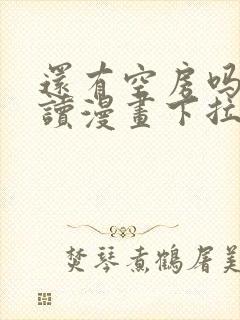 還有空房吗
讀漫畫下拉
焚琴煮鶴屠美